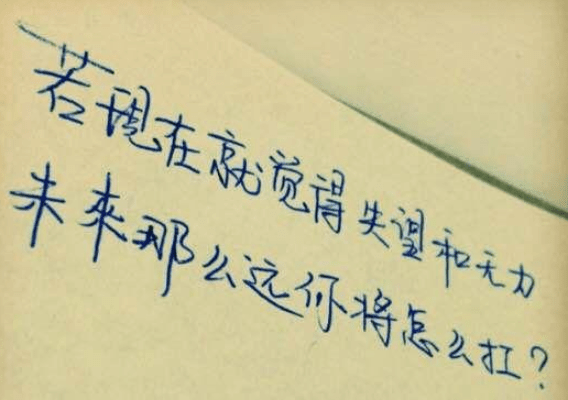 若现在就觉得失望和无力
未來那么远你将怎么扛?